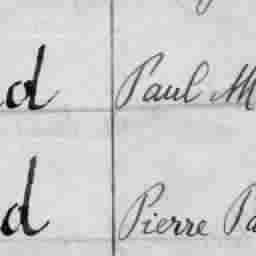 d Paul M
d Pierre Pa